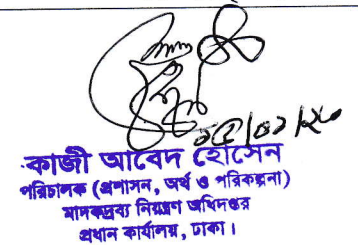 ২৫/০১/২৩
কাজী আবেদ হোসেন
পরিচালক (প্রশাসন, অর্থ ও পরিকল্পনা)
মাদকদ্রব্য নিয়ন্ত্রণ অধিদপ্তর
প্রধান কার্যালয়, ঢাকা।